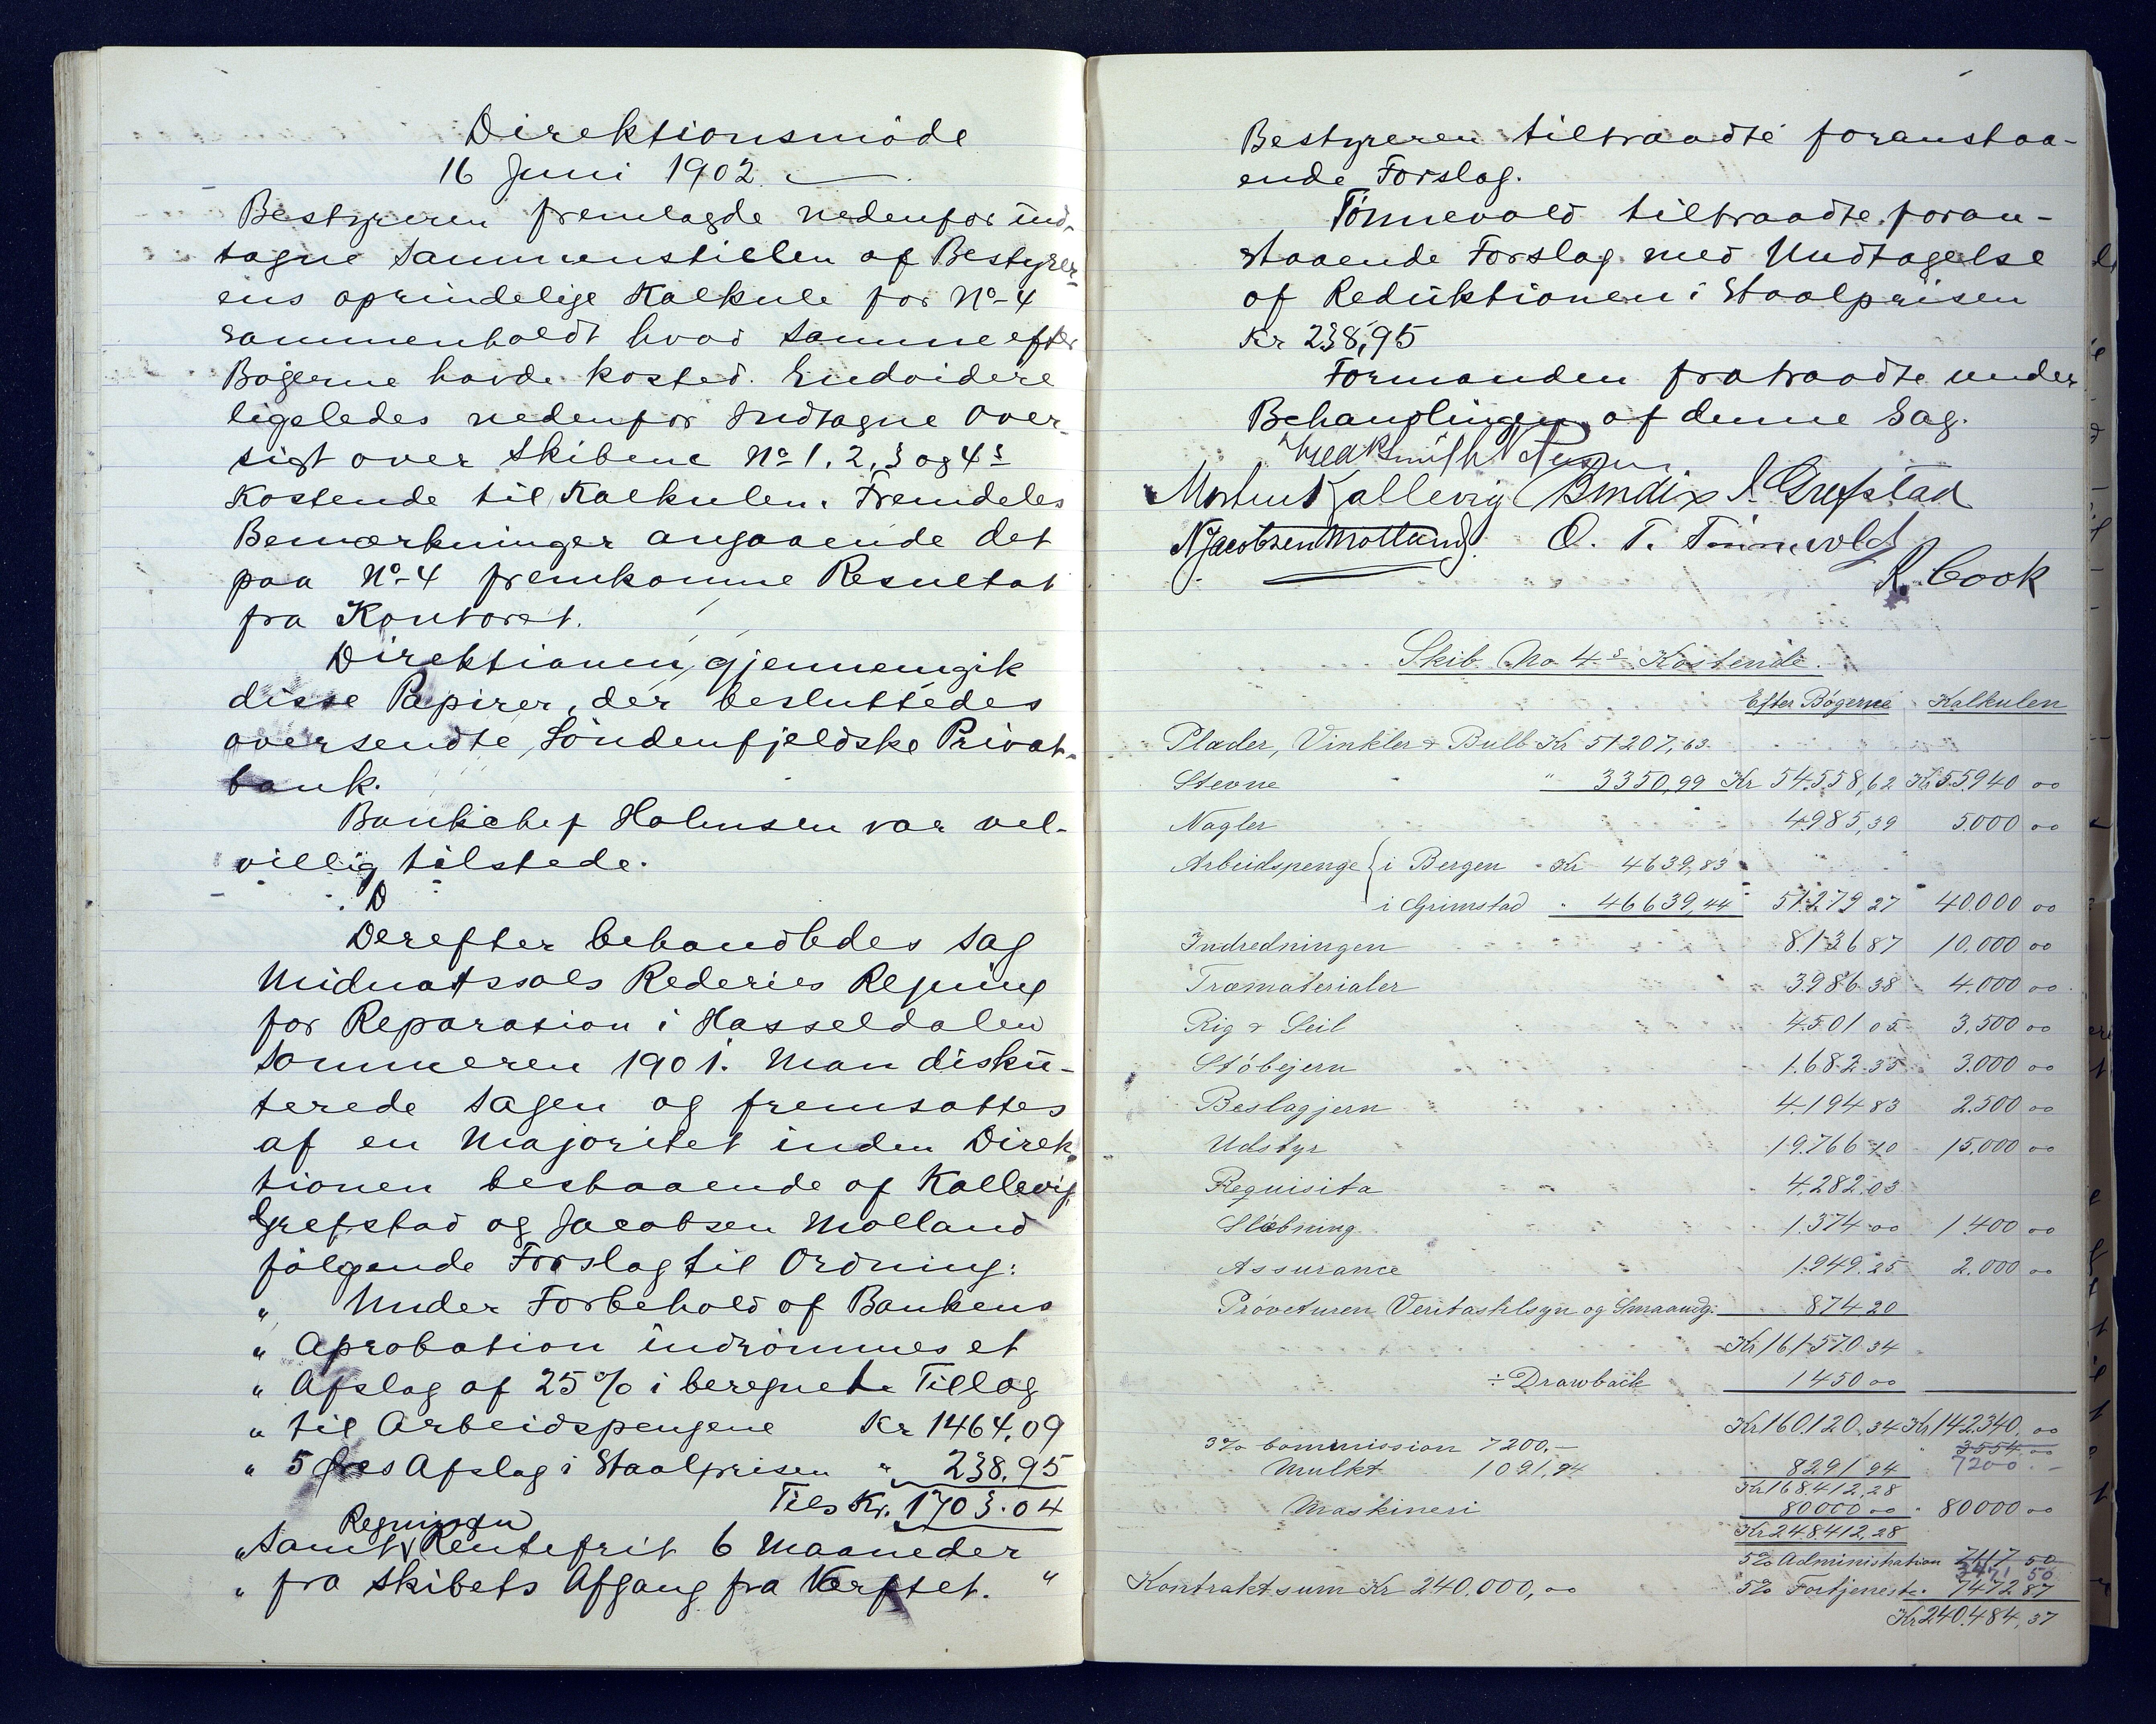 Direktionsmöde
16 Juni 1902.
Bestyreren fremlagde nedenfor ind-
tagne Sammenstillen af Bestyrer-
ens oprindelige Kalkule for No 4
sammenholdt hvad samme efter
Bögerne havde kosted. Endvidere
ligeledes nedenfor Indtagne Over-
sigt over Skibene No 1, 2, 3 og 4s
Kostende til Kalkulen. Fremdeles
Bemærkninger angaaende det
paa No 4 fremkomne Resultat
fra Kontoret.
Direktionen gjennemgik
disse Papirer, der besluttedes
oversendte Söndenfjeldske Privat-
bank.
Bankchef Holmsen var vel-
villig tilstede.
D
Derefter behandledes Sag
Midnatssols Rederies Regning
for Reparation i Hasseldalen
Sommeren 1901. Man disku-
terede Sagen og fremsattes
af en Majoritet inden Direk-
tionen bestaaende af Kallevig,
Grefstad og Jacobsen Molland
fölgende Forslag til Ordning:
" Under Forbehold af Bankens
" Aprobation indrömmes et
" Afslag af 25 % i beregnede Tillæg
" til Arbeidspengene Kr 1464,09
" 5 Afslag i Staalprisen " 238,95
Tils Kr. 1703.04
Regningen
" Samt Rentefrit 6 Maaneder
" fra Skibets Afgang fra Værftet. "
Bestyreren tiltraadte foranstaa-
ende Forslag.
Tönnevold tiltraadte foran-
staaende Forslag med Undtagelse
af Reduktionen i Staalprisen
Kr 238,95
Formanden fratraadte under
Behandlingen af denne Sag.
Smith Petersen
Morten Kallevig Bendix J. Grefstad
N Jacobsen Molland. O. T. Tönnevold
R. Cook
Skib No 4s Kostende.
Efter Bögerne Kalkulen
Plader, Vinkler & Bulb Kr 51207,63
Stevne " 3350,99 Kr 54558,62 Kr 55940 00
Nagler 4985,39 5000 00
Arbeidspenge { i Bergen Kr 4639,83
i Grimstad " 46639,44 51279 27 40.000 00
Indredningen 8.136 87 10.000 00
Træmaterialer 3986 38 4.000 00
Rig & Seil 4501 05 3.500 00
Stöbejern 1.682 35 3.000 00
Beslagjern 4194 83 2.500 00
Udstyr 19.766 10 15.000 00
Requisita 4.282.03
Slæbning 1.374 00 1400 00
Assurance 1949.25 2.000 00
Pröveturen Veritastilsyn og Smaaudg. 874 20
Kr 161570.34
÷ Drawback 1450 00
Kr 160.120.34 Kr 142.340.00
3% Commission 7200.- " 3554.00
Mulkt 1091,94 8291 94 7200.-
Kr 168.412,28
Maskineri 80000 00 " 80000 00
Kr 248.412,28
5% Administration 7117 50
3471 50
Kontraktsum Kr 240.000,00 5% Fortjeneste 7472 87
Kr 240.484,37